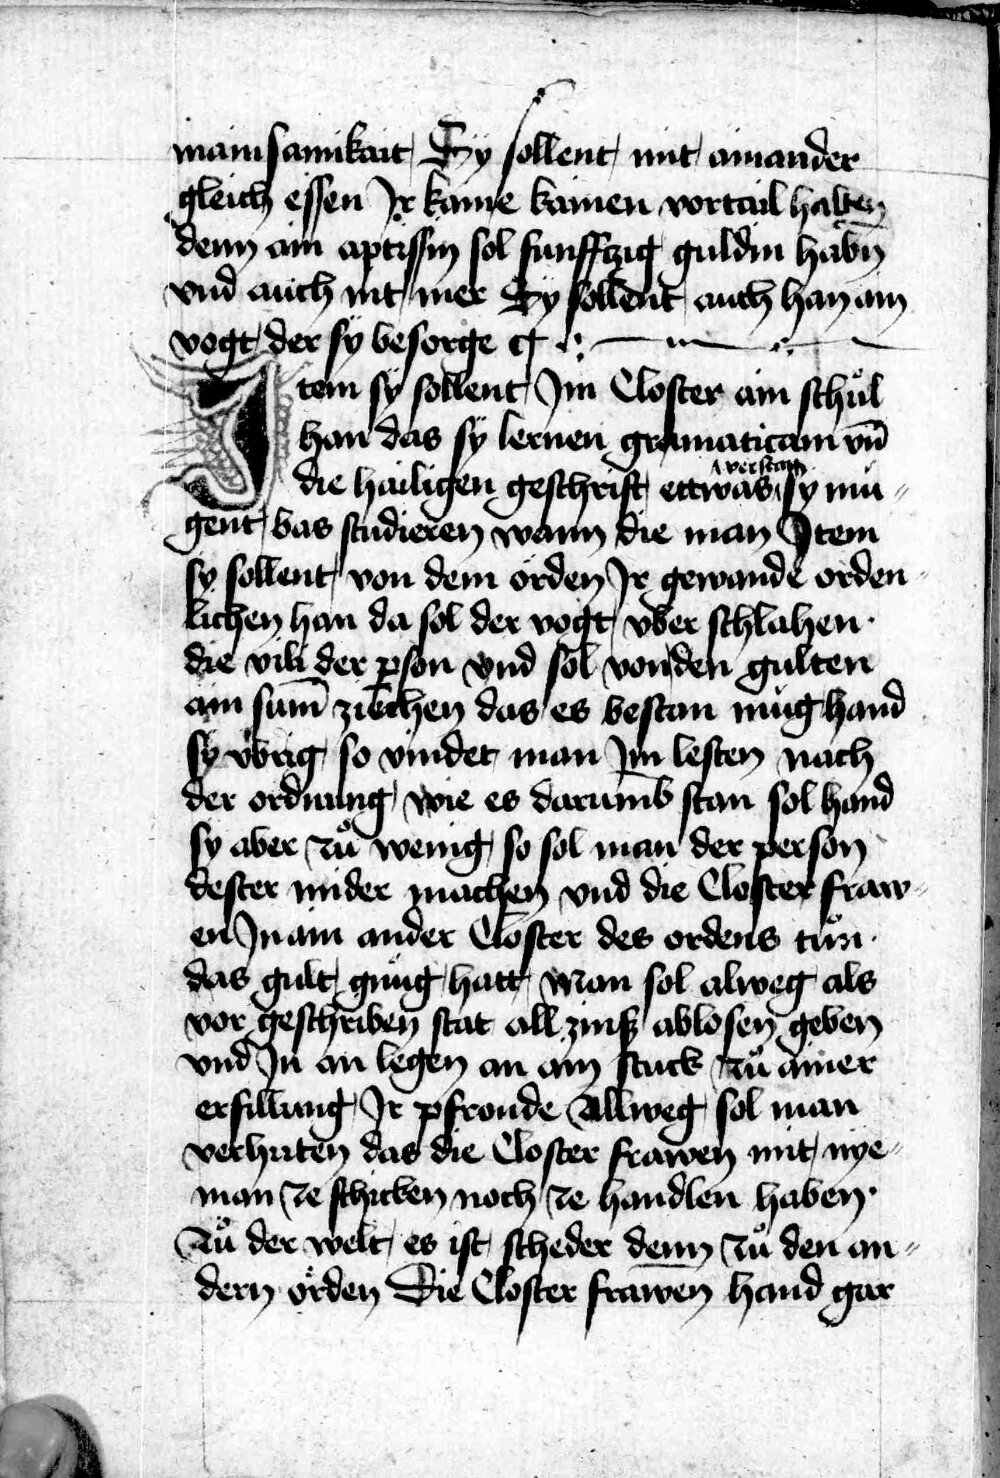 mainsamikait Sy sollent mit ainander
gleich essen Jr kaine kainen vortail halten
denn ain aptissin sol funffczig guldin habn̄
vnd auch nit mer Sy sollent auch han ain
vogt der sy besorge
Jtem sy sollent Jm Closter ain schůl
han das sy lernen gramaticam vn̄
die hailigen geschrift ettwas verstan sy mu-
gent bas studieren wann die man Jtem
sy sollent von dem orden Jr gewande orden-
lichen han da sol der vogt vber schlahen.
die vili der ꝑson vnd sol von den gulten
ain sum̄ ziechen das es bestan mug hand
sy vbrig so vindet man Jm lesten nach
der ordnung wie es darumb stan sol hand
sy aber zů wenig so sol man der person
dester minder machen vnd die Closter fraw-
en Jn ain ander Closter des ordens tůn.
das gult gnůg hatt Man sol alweg als
vor geschriben stat all zinß ablosen geben
vnd Jn an legen an ain stuck zů ainer
erfillung Jr pfronde Allweg sol man
verhuten das die Closter frawen mit nye-
man ze schicken noch ze handlen haben.
zů der welt es ist scheder denn zů den an-
dern orden Die Closter frawen hand gar